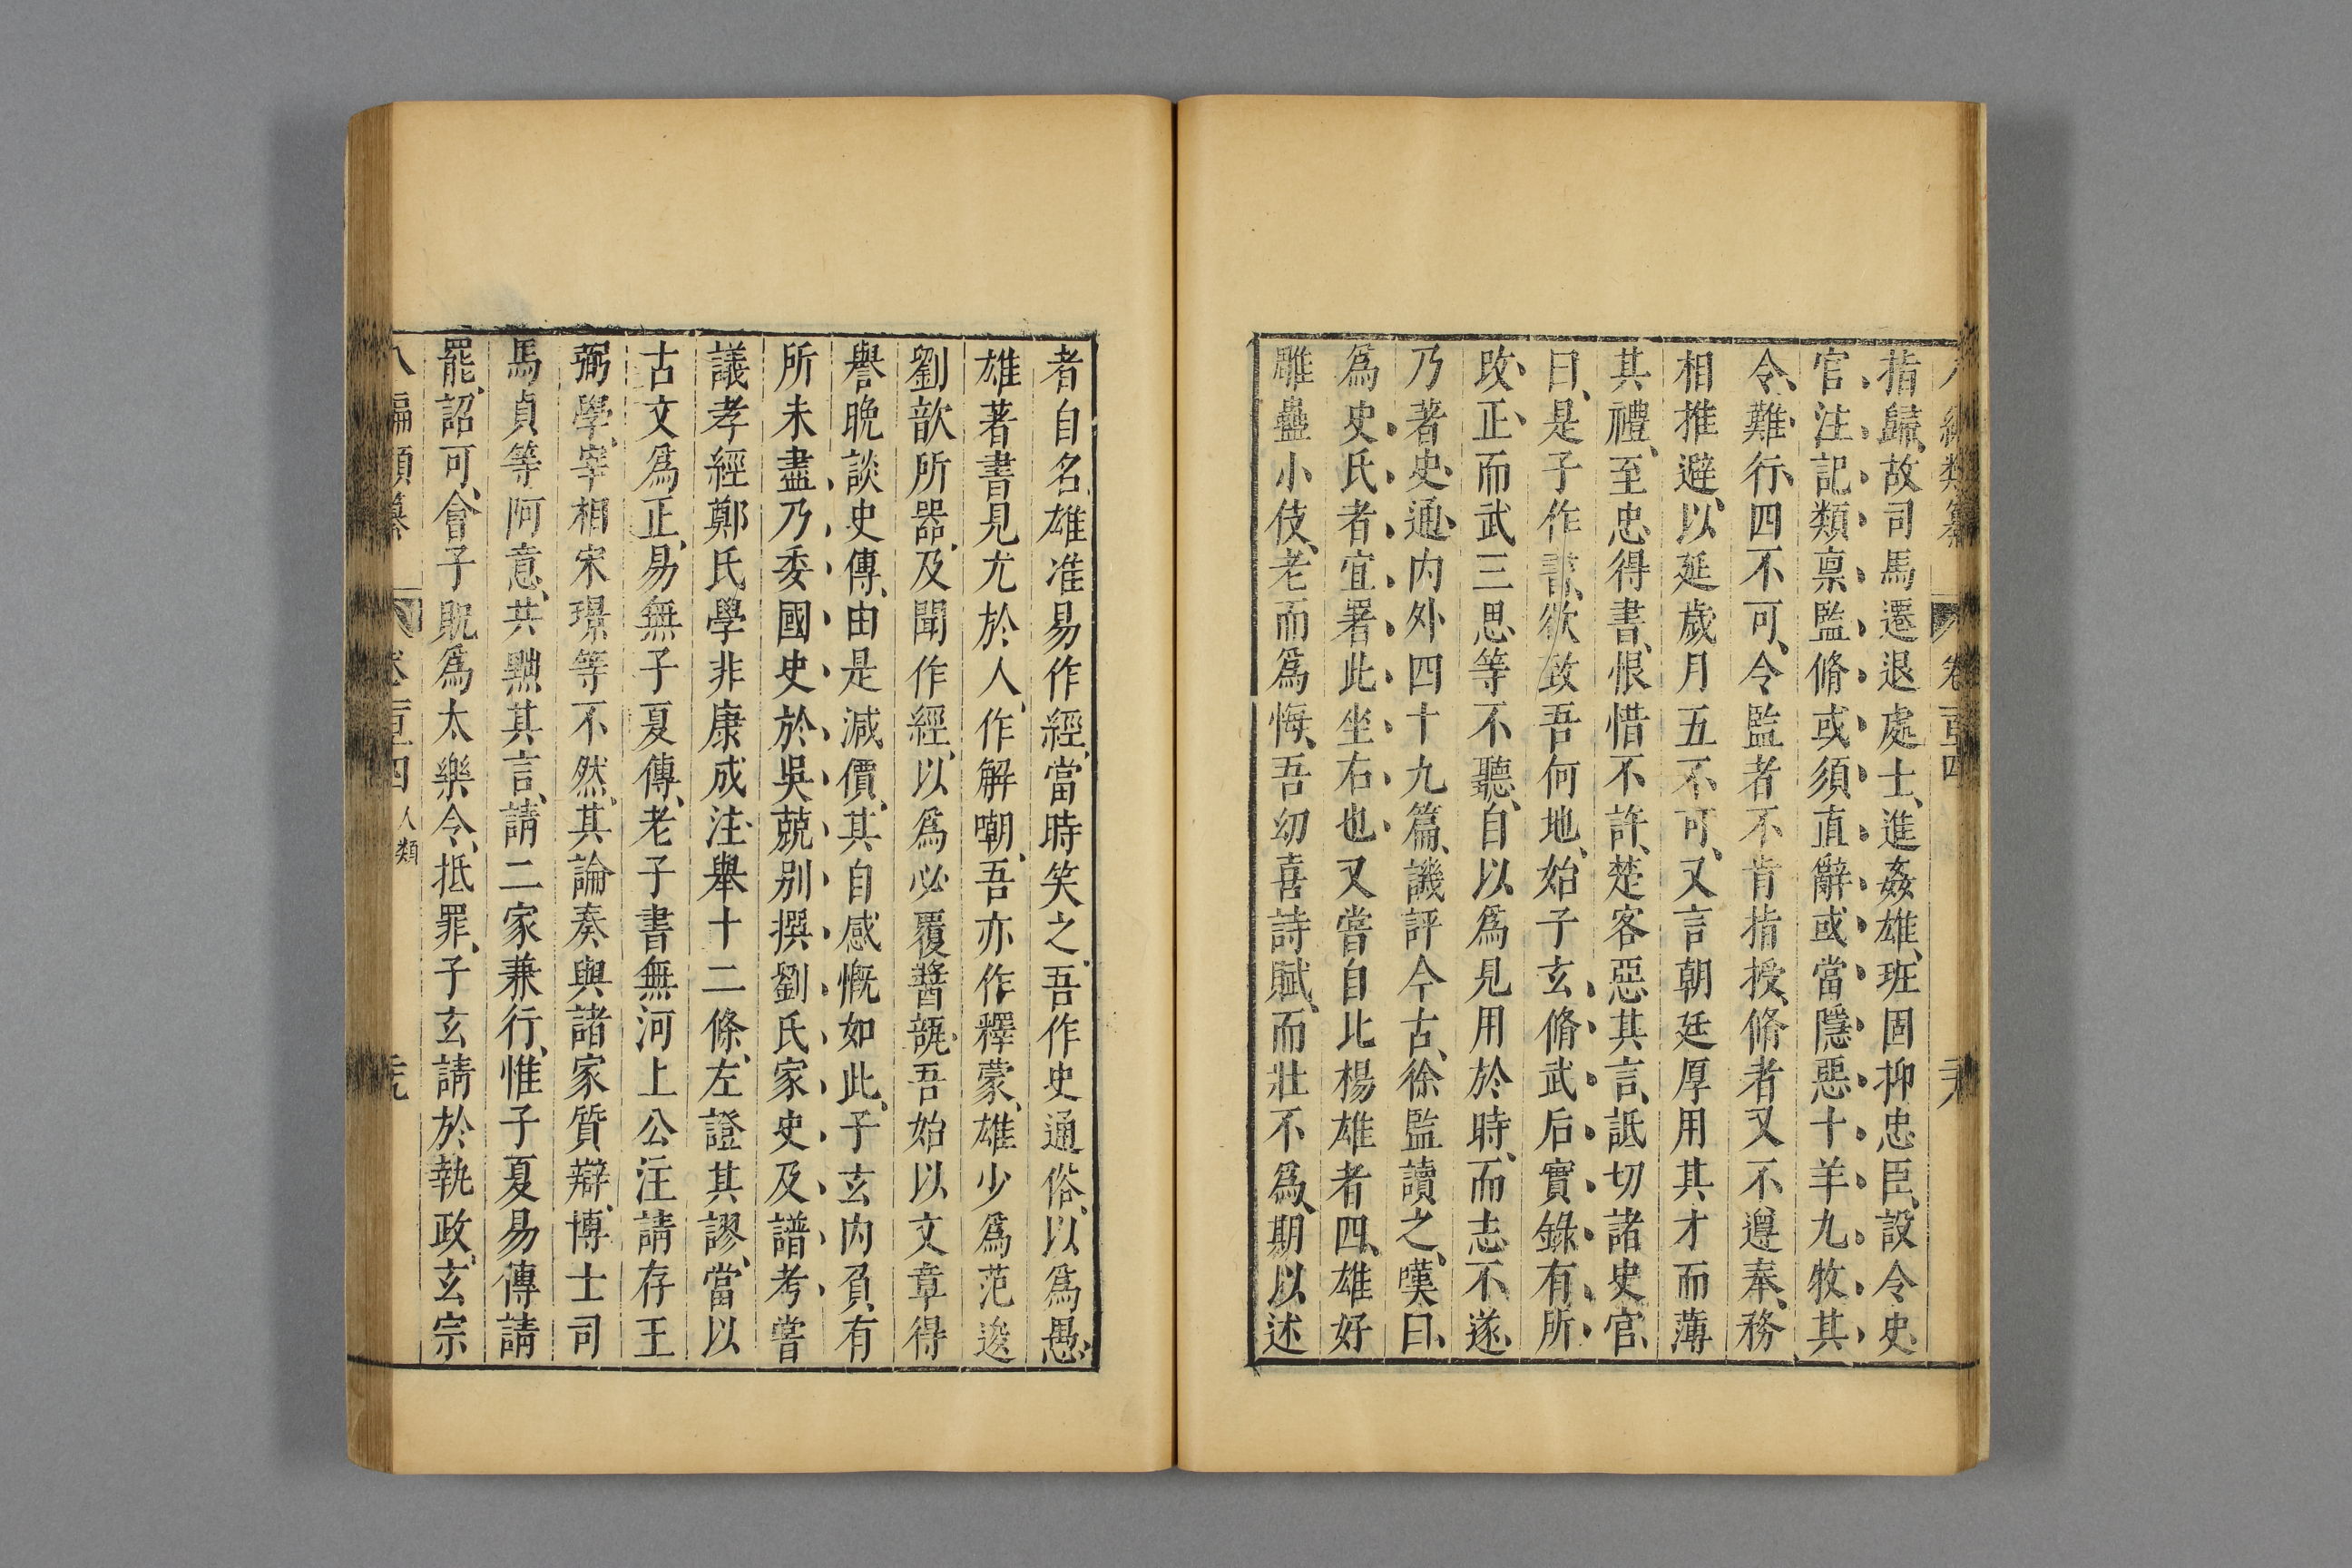 指歸、故司馬遷退處士、進姦雄、班固抑忠臣、設令史
官注記類稟監脩或須直辭或當隱惡十羊九牧其
令難行、四不可、令監者不肯指授、脩者又不遵奉、務
相推避、以延歲月五不可、又言朝廷厚用其才而薄
其禮、至忠得書、恨惜不許、楚客惡其言、詆切諸史官、
曰、是子作書、欲致吾何地、始子玄脩武后實錄有所
改正而武三思等不聽、自以爲見用於時、而志不遂、
乃著史通內外四十九篇、譏評今古、徐監讀之、嘆曰、
爲史氏者宜署此坐右也又嘗自比楊雄者四、雄好
雕蟲小伎、老而爲悔、吾幼喜詩賦、而壯不爲、期以述
者自名、雄准易作經、當時笑之、吾作史通俗、以爲愚、
雄著書見尤於人、作解嘲、吾亦作釋蒙、雄少爲范逡
劉歆所器、及聞作經、以爲必覆醬瓿、吾始以文章得
譽晚談史傳、由是減價、其自感慨如此、子玄內負有
所未盡乃委國史於吳兢別撰劉氏家史及譜考嘗
議孝經鄭氏學非康成注、舉十二條、左證其謬、當以
古文爲正、易無子夏傳、老子書無河上公注請存王
弼學、宰相宋璟等不然、其論奏與諸家質辯、博士司
馬貞等阿意、共黜其言、請二家兼行、惟子夏易傳請
罷、詔可、會子貺爲太樂令、抵罪、子玄請於執政、玄宗
八編類纂 卷一百四 人類